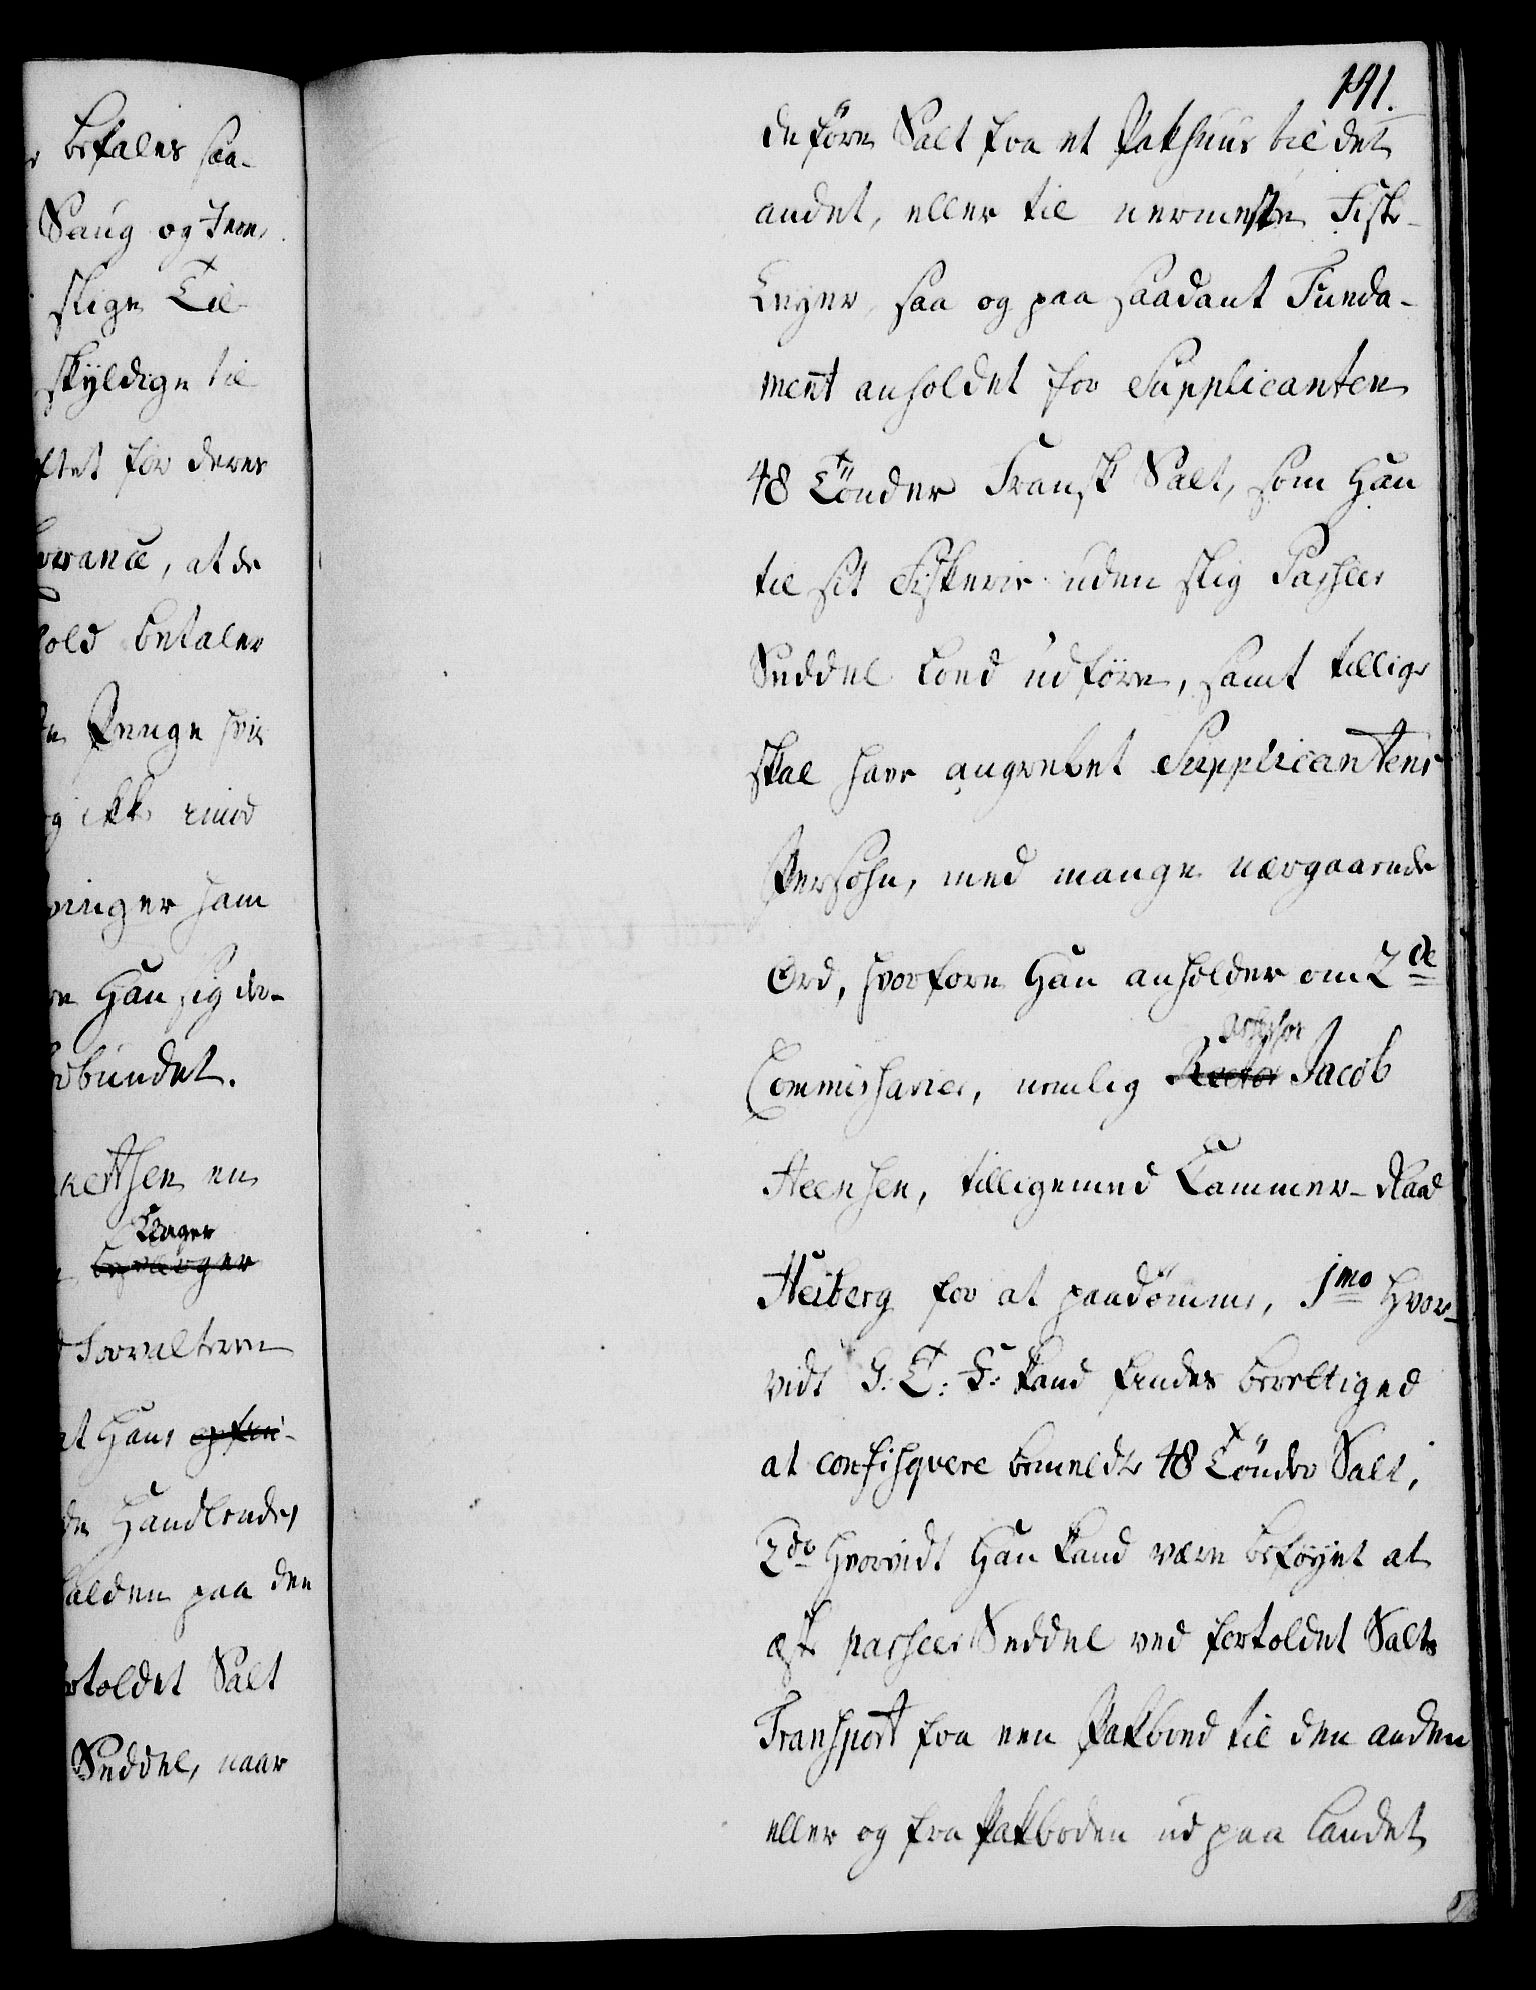 befales saa-
Saug og Jern
slige Til
skÿldige til
ftet for deres
rance, at de
old betaler
Penge hvis
g ikke imod
ringer ham
Han sig der-
rbundet.
kertsen en
Klager
Forvaltere
at Hans
de Handlendes
alden paa den
rtoldet Salt
Seddel, naar
191.
de føre Salt fra et Pakhuus til det
andet, eller til nermeste Fiske-
Leyer, saa og paa saadant Funda-
ment anholdet for Supplicanten
48 Tönder Fransk Salt, som Han
til sit Fiskerie uden slig Passeer
Seddel lod udföre, samt tillige
skal have angrebet Supplicantens
Persohn, med mange nærgaaende
Ord, hvorfore Han anholder om 2de
Commissarier, nemlig Rector Assessor Jacob
Steensen, tilligemed Kammer-Raad
Heiberg for at paadømme, 1mo Hvor-
vidt S: T: F: kand findes berettiged
at confisqvere bemeldte 48 Tönder Salt,
2do Hvorvidt Han kand være beføyet at
æske passeer Seddel ved fortoldet Salts
Transport fra een Pakboed til den anden
eller og fra Pakboden ud paa Landet